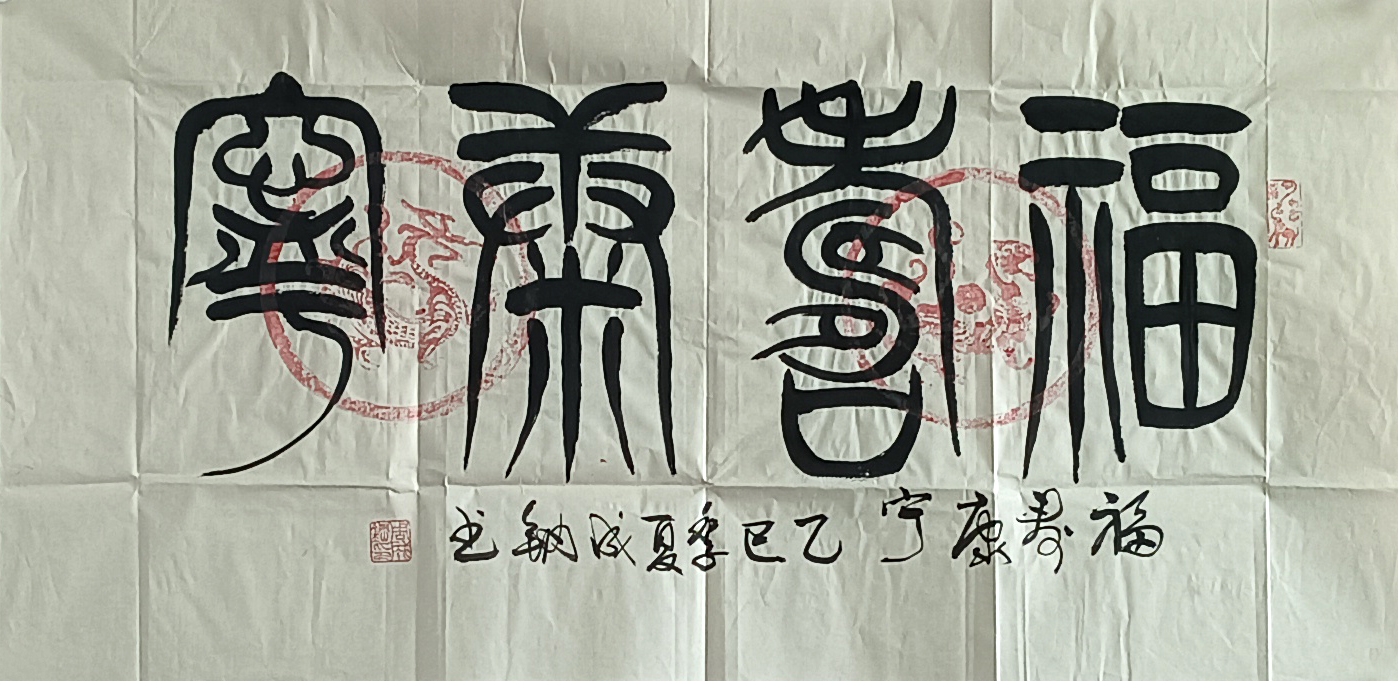 福壽康寧
福寿康宁 乙巳季夏成钢书